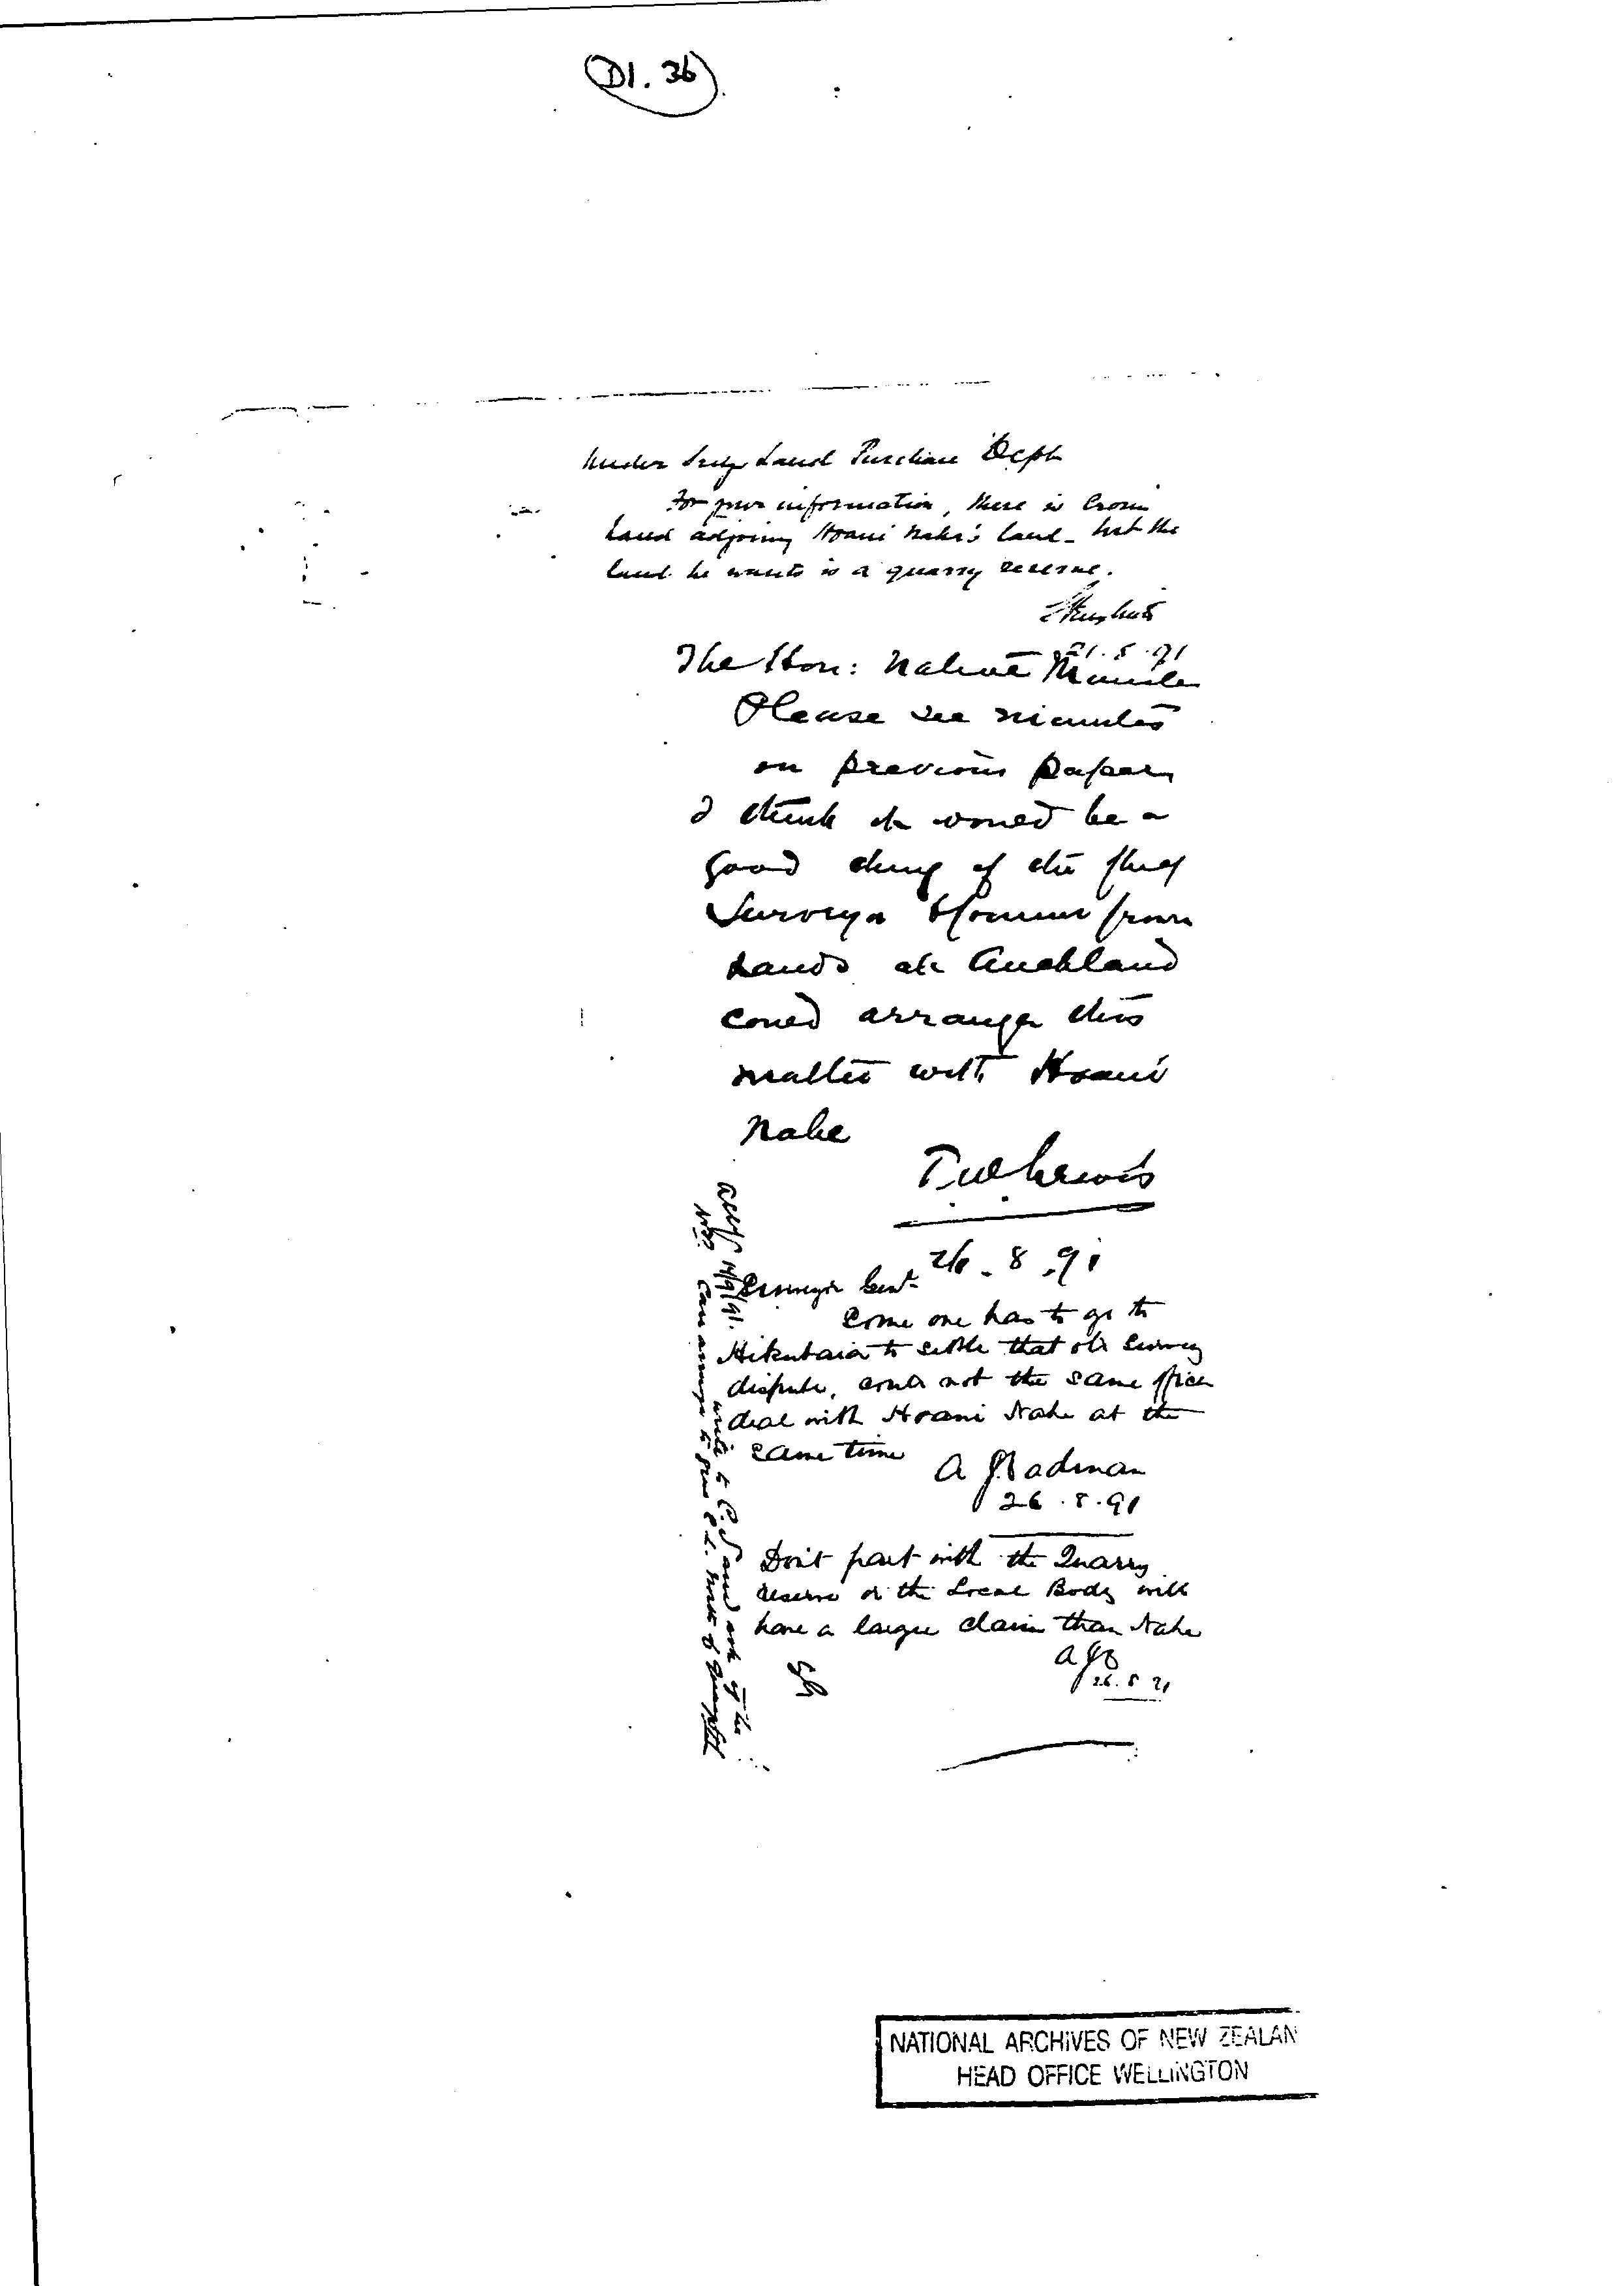 D1. 36
Under Secy Land Purchase Dept
For your information, there is Crown
Land adjoining Hoani Nahe's land - but the
land he wants is a quarry reserve.
21.8.91
The Hon: Native Minister
Please see minutes
on previous papers
I think it would be a
good thing if the Chief
Surveyor & Commr Crown
Lands at Auckland
could arrange this
matter with Hoani
Nahe
T W Lewis
26.8.91
Surveyor Genl.
Some one has to go to
Hikutaia to settle that old survey
dispute, could not the same officer
deal with Hoani Nahe at the
same time
A J Cadman
26.8.91
Don't part with the Quarry
reserve or the Local Body will
have a larger claim than Nahe
AJC
26.8.91
14/9/91.
write to C.S and ask if he
can arrange to give
NATIONAL ARCHIVES OF NEW ZEALAN
HEAD OFFICE WELLINGTON